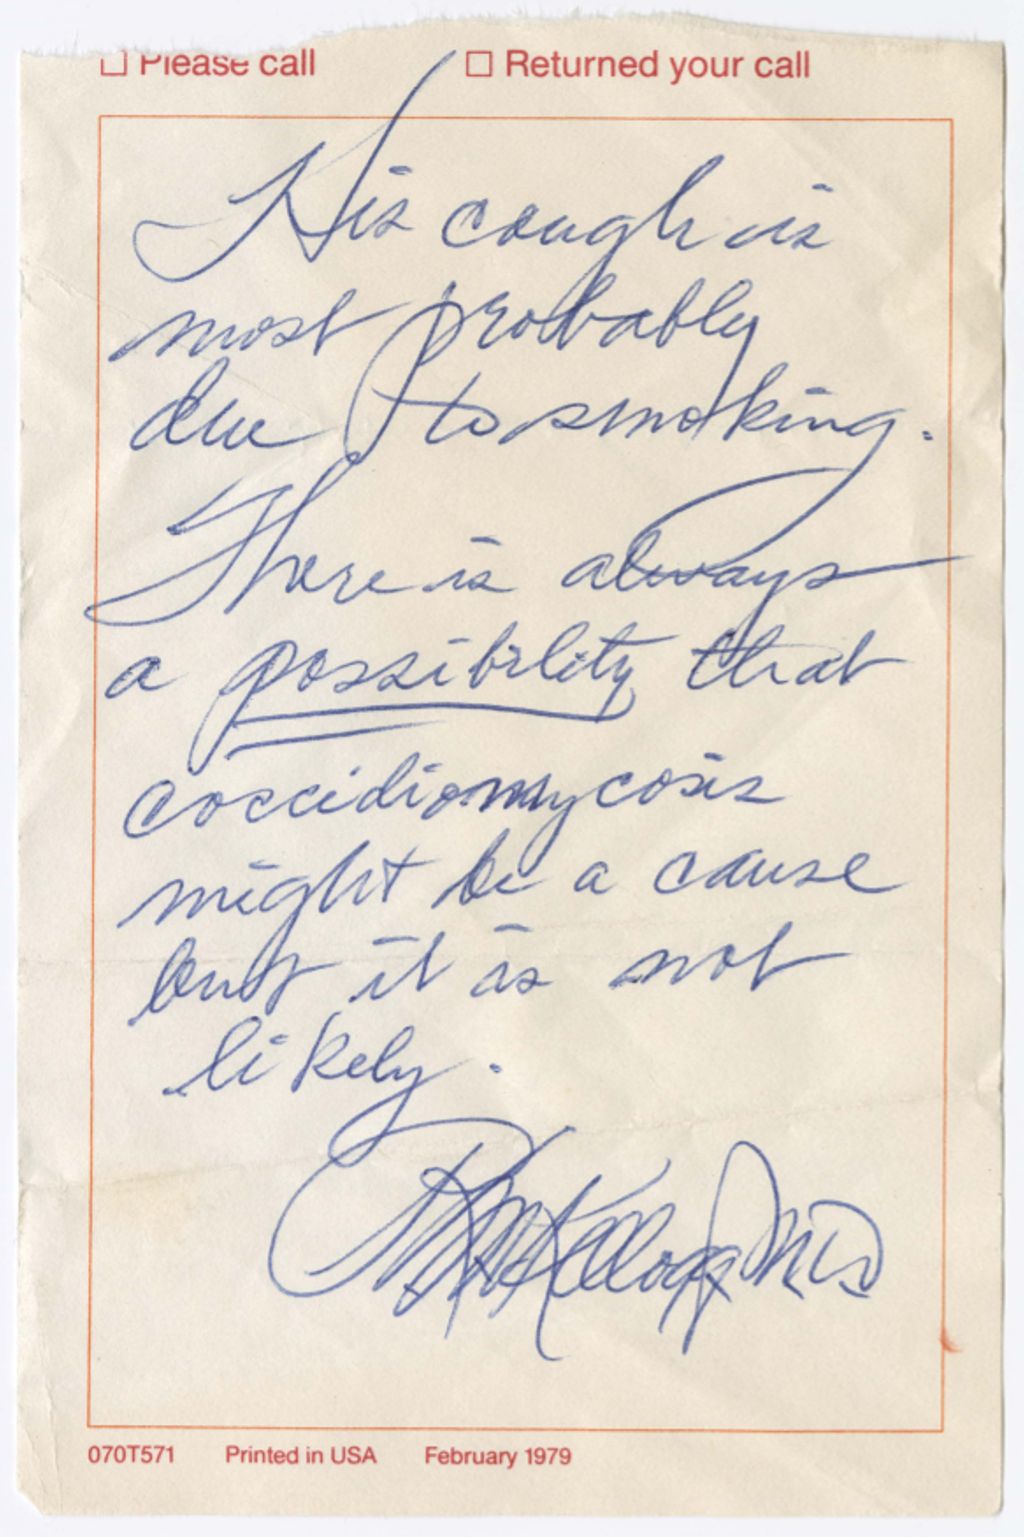 ☐ Please call ☐ Returned your call
His cough is
most probably
due to smoking.
There is always
a possibility that
coccidiomycosis
might be a cause
but it is not
likely.
Kellogg MD
070T571 Printed in USA February 1979